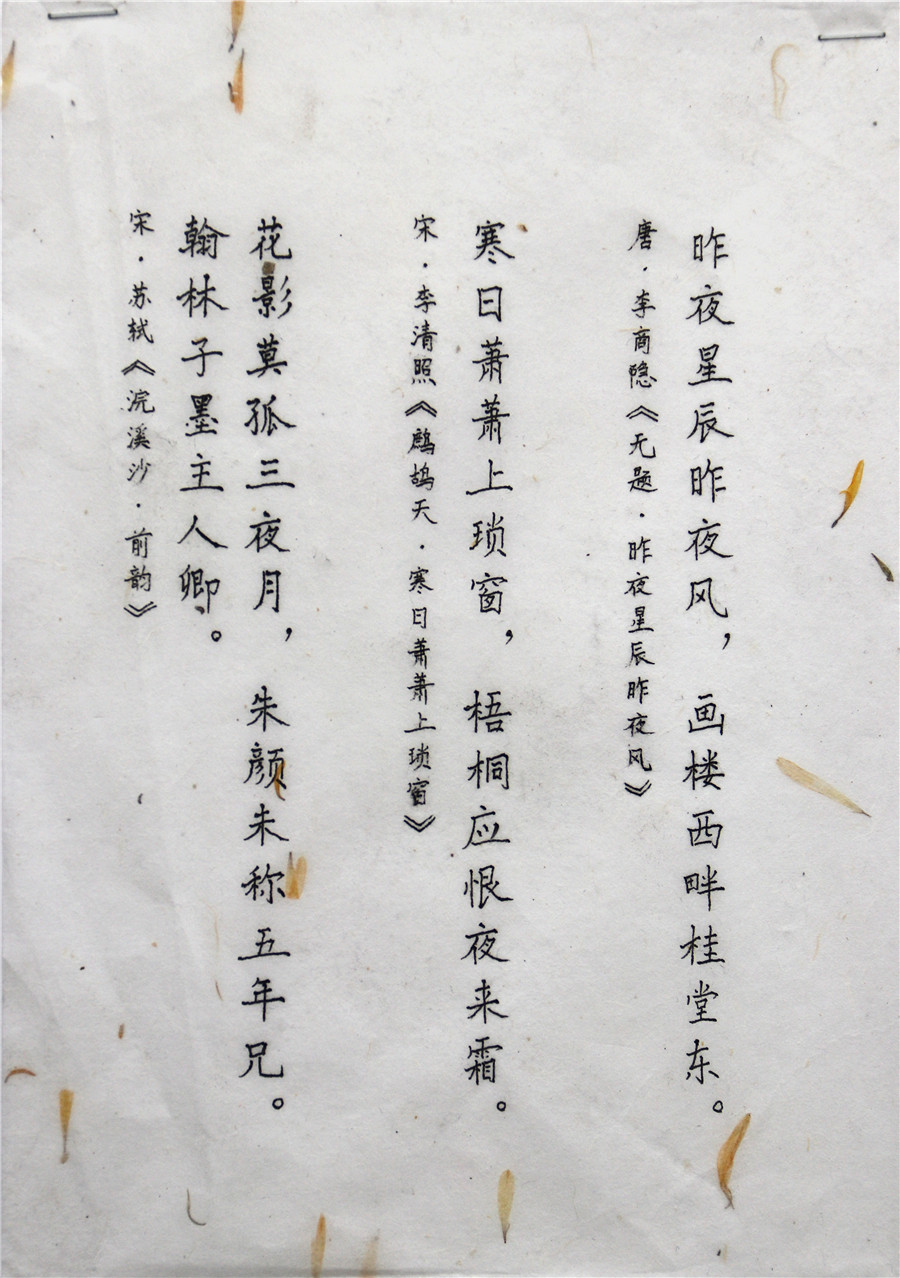 昨夜星辰昨夜风，画楼西畔桂堂东。
唐·李商隐《无题·昨夜星辰昨夜风》
寒日萧萧上琐窗，梧桐应恨夜来霜。
宋·李清照《鹧鸪天·寒日萧萧上琐窗》
花影莫孤三夜月，朱颜未称五年兄。
翰林子墨主人卿。
宋·苏轼《浣溪沙·前韵》